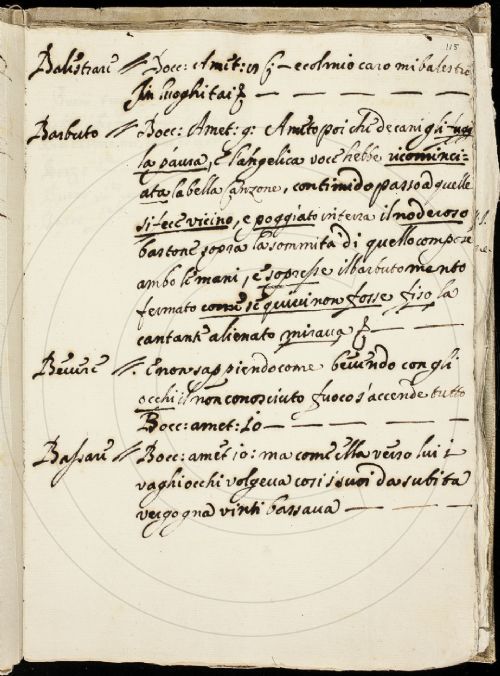 115
Balestrare // Bocc: Amet: 9 – e col mio caro mi balestrò
In luoghi tai
Barbuto // Bocc: Amet: 9: Ameto poi che de cani gli fuggì
la paura, e l'angelica voce hebbe ricominci-
ata la bella canzone, con timido passo a quelle
si fece vicino, e poggiato in terra il noderoso
bastone, sopra la sommità di quello compose
ambo le mani, e sopresse il barbuto mento
fermato come se quivi non fosse fiso la
cantante alienato mirava
Bevere // E non sappiendo come bevendo con gli
occhi il non conosciuto fuoco s'accende tutto
Bocc: amet: 10
Bassare // Bocc: amet 10: ma come ella verso lui i
vaghi occhi volgeva così i suoi da subita
vergogna vinti bassava